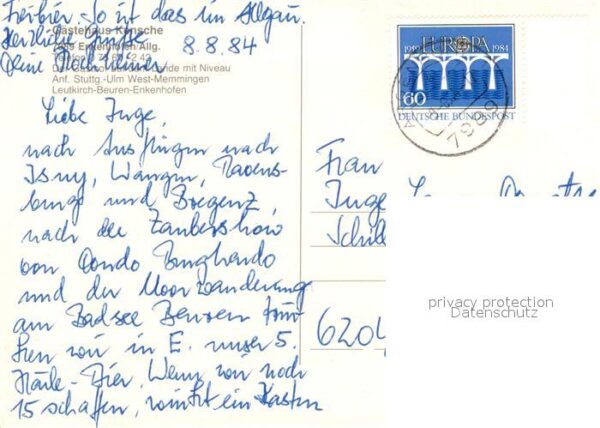 Freibier. So ist das im Allgäu.
Herzliche Grüße
8.8.84
Deine
Gästehaus Kunsche
7989 Enkenhofen/Allg.
mit Niveau
Anf. Stuttg.-Ulm West-Memmingen
Leutkirch-Beuren-Enkenhofen
Liebe Inge,
nach Ausflügen nach
Isny, Wangen, Ravens-
burg und Bregenz,
nach der Zaubershow
von
und der Moorwanderung
am Badsee Beuren trin-
ken wir in E. unser 5.
Härle-Bier. Wenn wir noch
15 schaffen, winkt ein Kasten
EUROPA
1959 1984
60
DEUTSCHE BUNDESPOST
7989
Frau
Inge
Schil
6204
privacy protection
Datenschutz